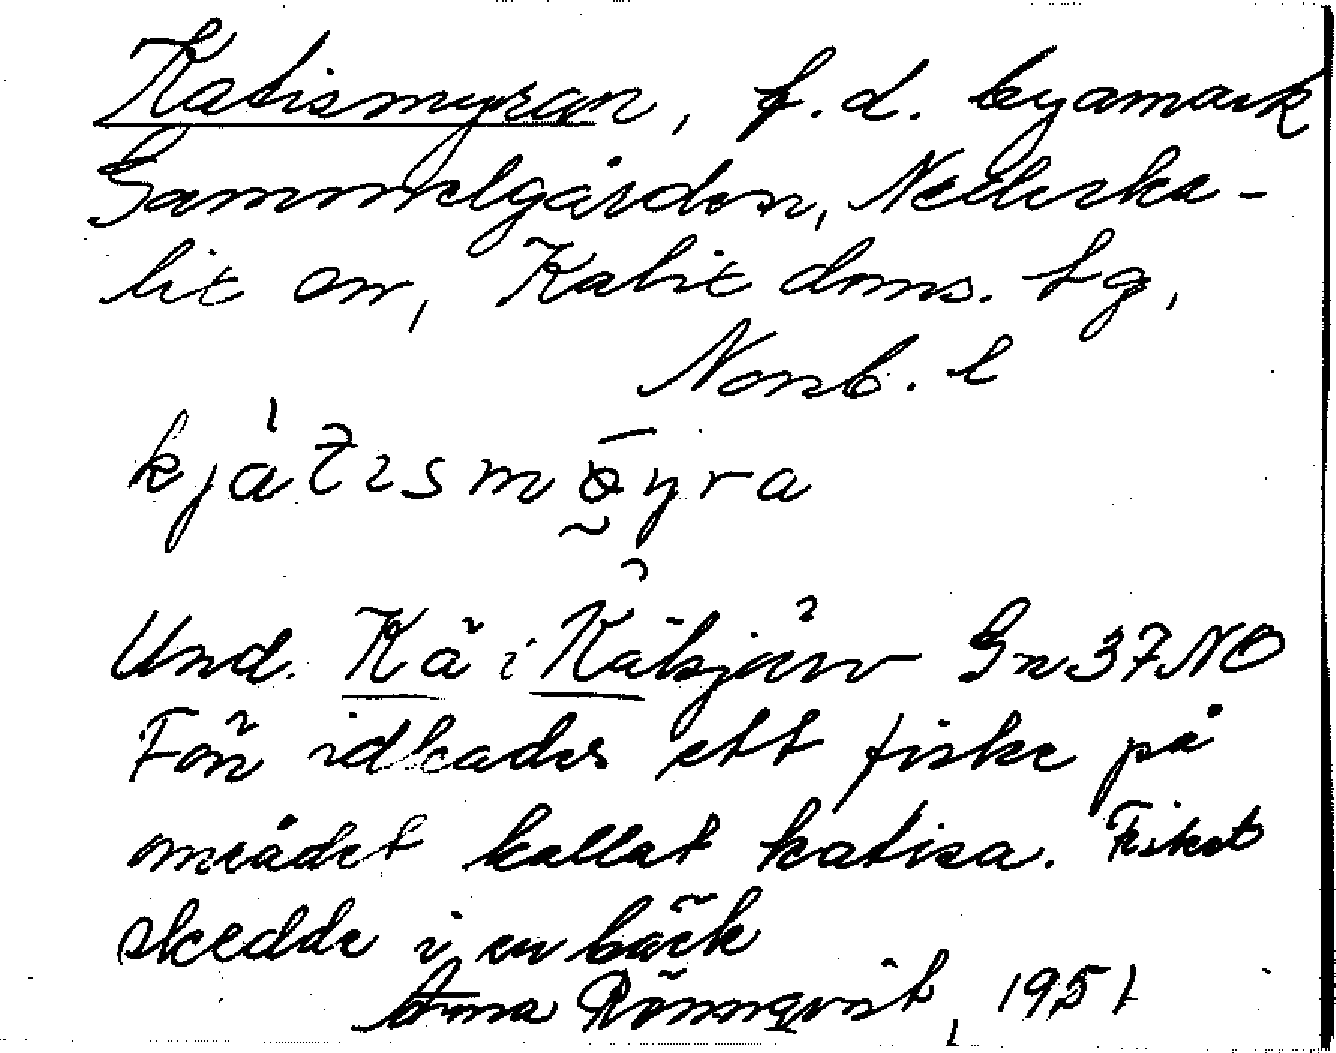 Katismyran, f.d. byamark
Gammelgården, Nederka-
lix sn, Kalix doms. tg,
Norrb. l
kjàtismøyra
Und. Kä i Käbsjärv Gn 37 NO
Förr idkades ett fiske på
området kallat katisa. Fisket
skedde i en bäck
Anna Rönnqvist, 1951